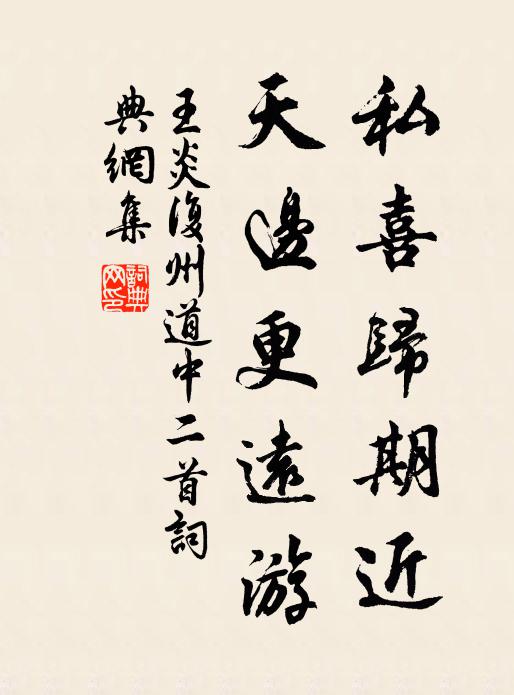 私喜歸期近
天邊更遠游
王炎復州道中二首詞
典網集
詞典網印